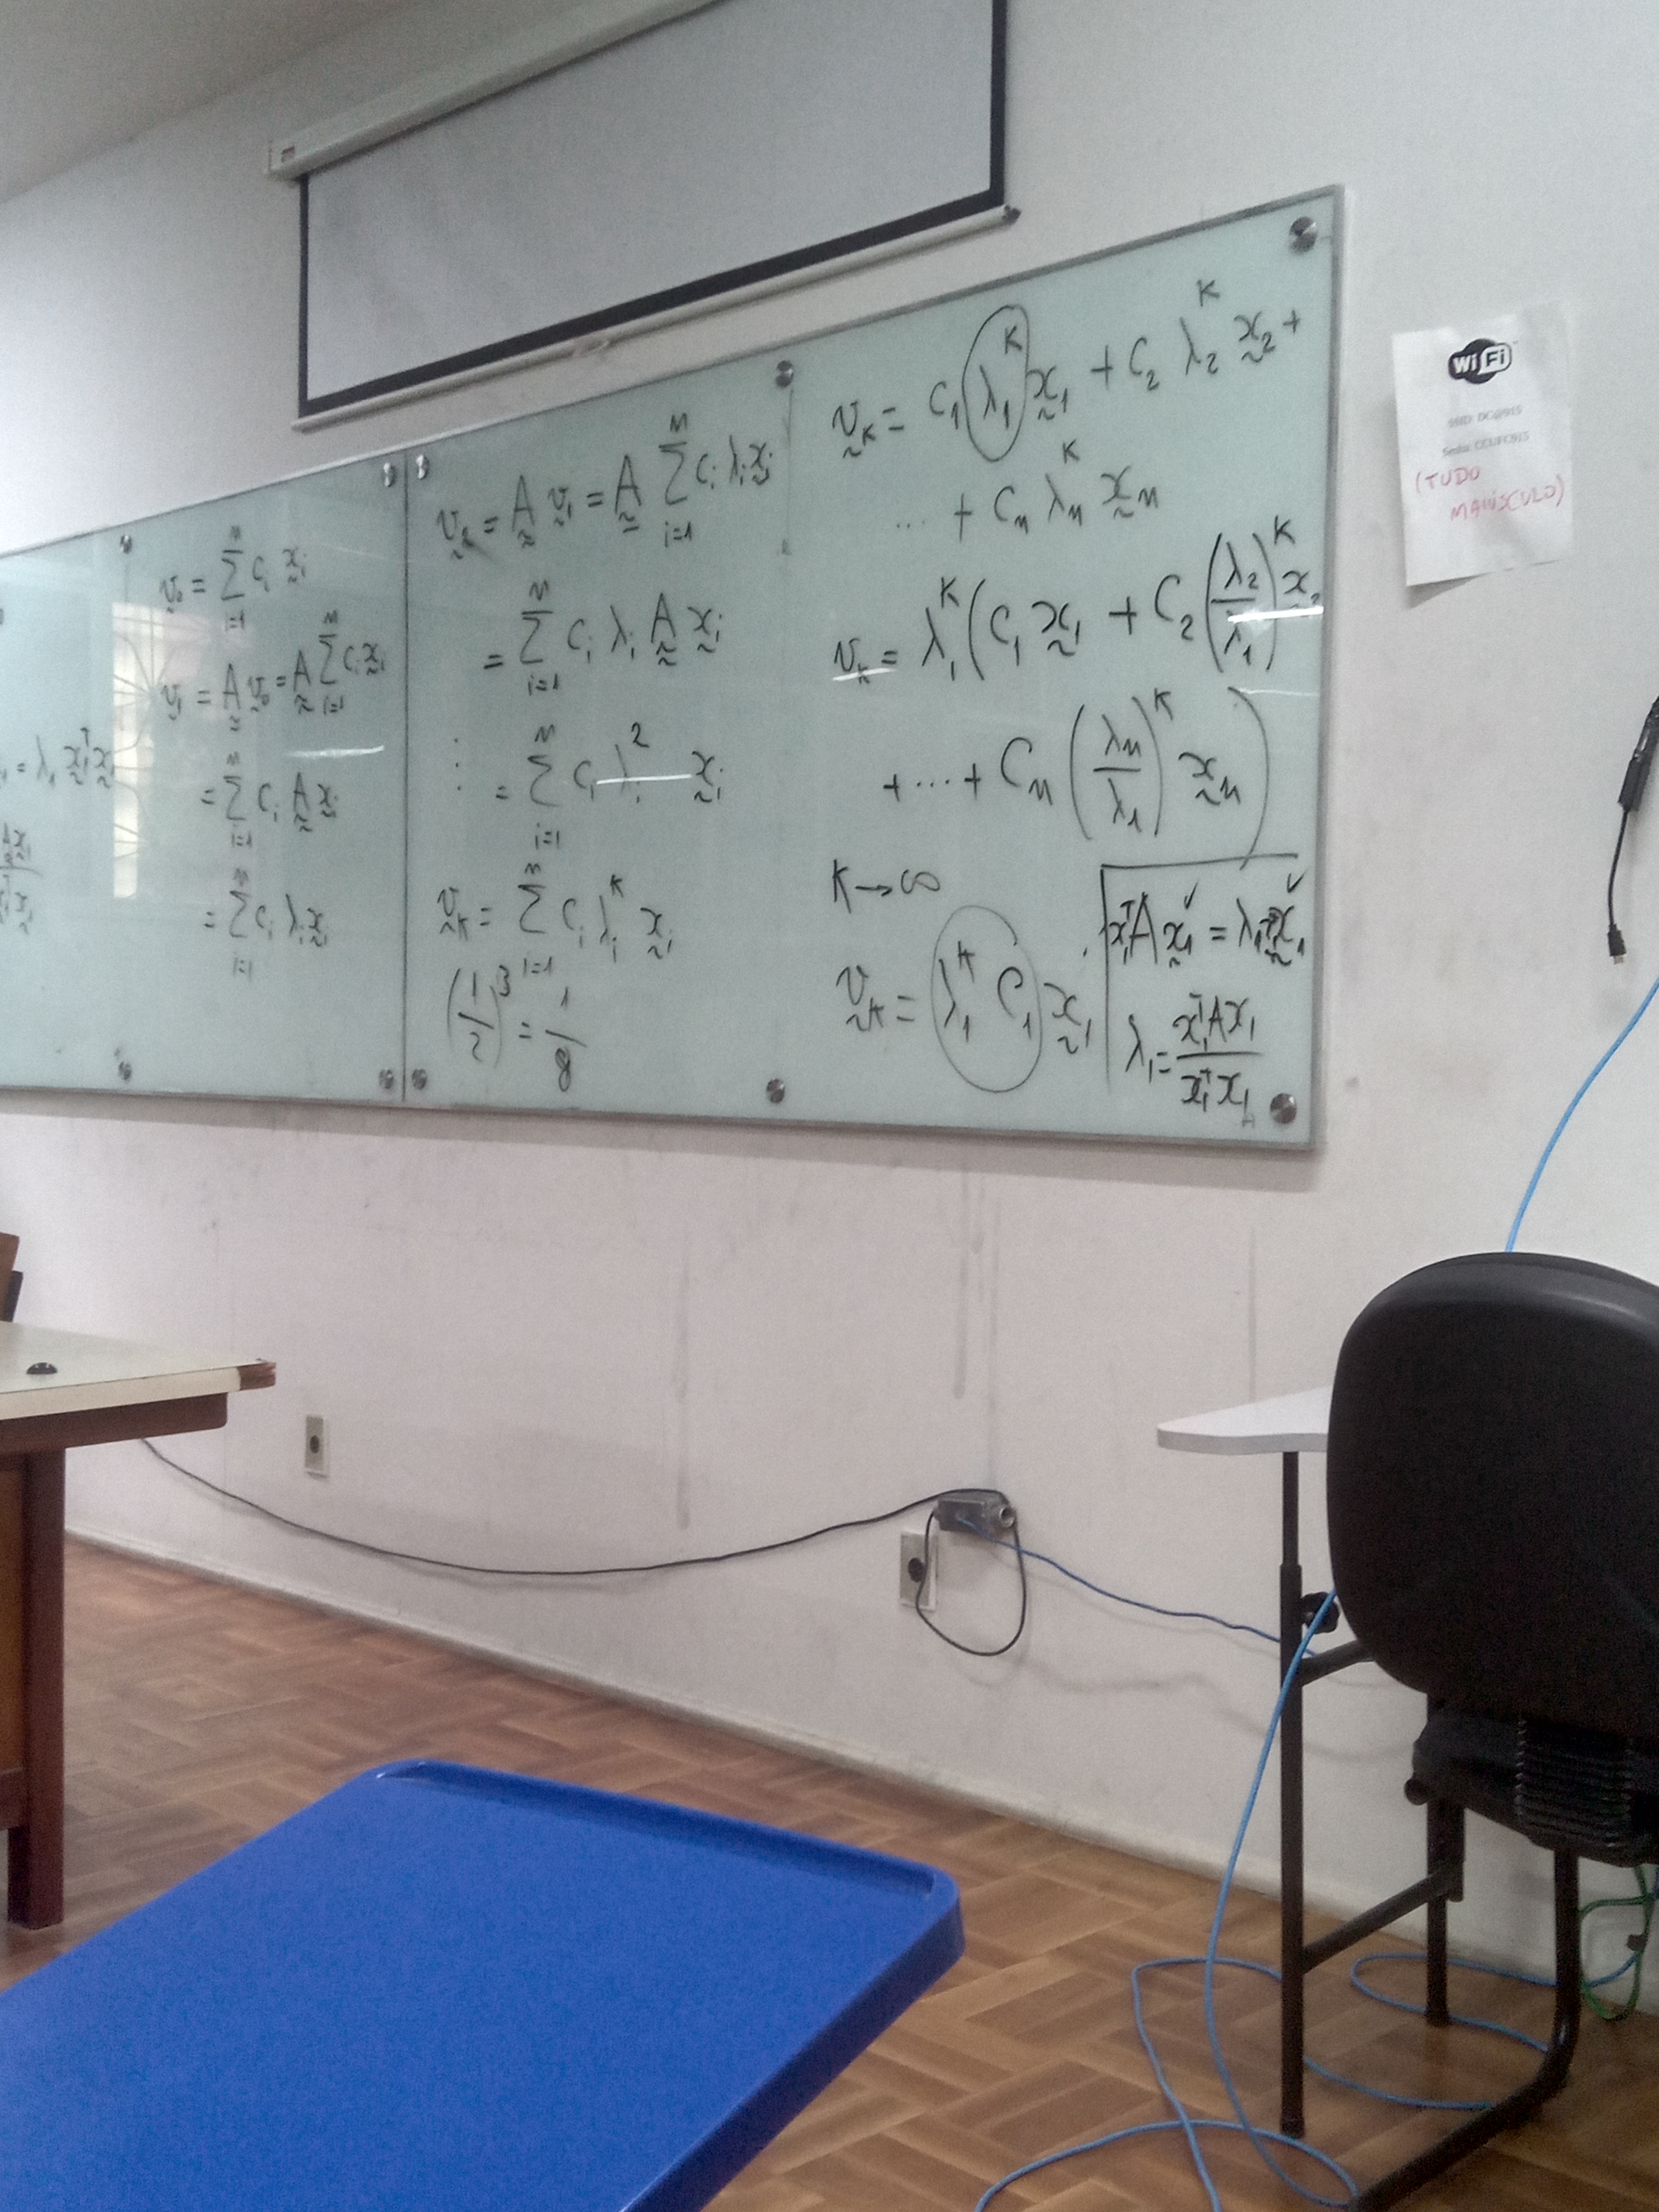 ₁ = λ₁ x₁ᵀ x₁
v₀ = Σ_{i=1}^{n} cᵢ xᵢ
v₁ = A v₀ = A Σ_{i=1}^{n} cᵢ xᵢ
= Σ_{i=1}^{n} cᵢ A xᵢ
= Σ_{i=1}^{n} cᵢ λᵢ xᵢ
v₂ = A v₁ = A Σ_{i=1}^{n} cᵢ λᵢ xᵢ
= Σ_{i=1}^{n} cᵢ λᵢ A xᵢ
⋮ = Σ_{i=1}^{n} cᵢ λᵢ² xᵢ
v_K = Σ_{i=1}^{n} cᵢ λᵢ^K xᵢ
(1/2)³ = 1/8
v_K = C₁ λ₁^K x₁ + C₂ λ₂^K x₂ +
... + Cₙ λₙ^K xₙ
v_K = λ₁^K (C₁ x₁ + C₂ (λ₂/λ₁)^K x₂
+ ... + Cₙ (λₙ/λ₁)^K xₙ)
K → ∞
v_K = λ₁^K C₁ x₁
x₁ᵀ A x₁ = λ₁ x₁ᵀ x₁
λ₁ = x₁ᵀ A x₁ / x₁ᵀ x₁
WiFi
SSID: DC@915
(TUDO
MAIÚSCULO)